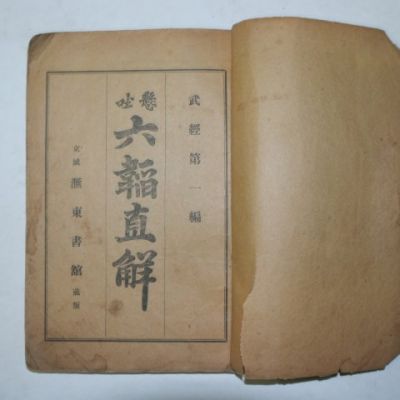 武經第一編
懸吐
六韜直解
京城 滙東書館 藏版